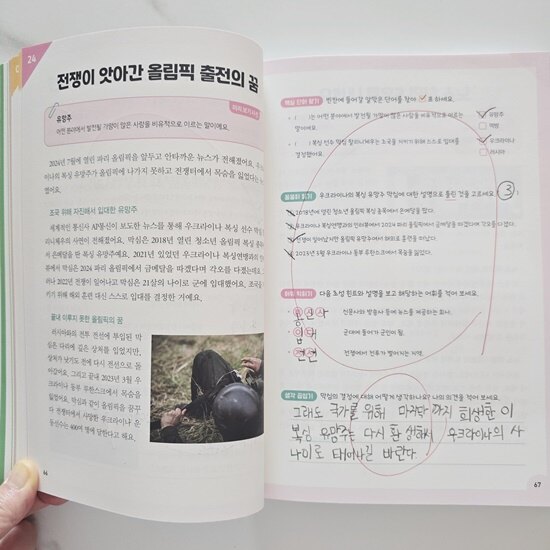 24
전쟁이 앗아간 올림픽 출전의 꿈
미리 보기 사전
유망주
어떤 분야에서 발전될 가망이 많은 사람을 비유적으로 이르는 말이에요.
2024년 7월에 열린 파리 올림픽을 앞두고 안타까운 뉴스가 전해졌어요. 우크라
이나의 복싱 유망주가 올림픽에 나가지 못하고 전쟁터에서 목숨을 잃었다는
었어요.
조국 위해 자진해서 입대한 유망주
세계적인 통신사 AP통신이 보도한 뉴스를 통해 우크라이나 복싱 선수 막심
리니체우의 사연이 전해졌어요. 막심은 2018년 열린 청소년 올림픽 복싱 종목
서 은메달을 딴 복싱 유망주예요. 2021년 있었던 우크라이나 복싱연맹과의 인
에서 막심은 2024 파리 올림픽에서 금메달을 따겠다며 각오를 다졌는데요.
러나 2022년 전쟁이 일어나고 막심은 21살의 나이로 군에 입대했어요. 조국
키기 위해 해외 훈련 대신 스스로 입대를 결정한 거예요.
끝내 이루지 못한 올림픽의 꿈
러시아와의 전투 전선에 투입된 막
심은 다리에 깊은 상처를 입었지만,
상처가 낫기도 전에 다시 전선으로 돌
아갔어요. 그리고 결국 2023년 3월 우
크라이나 동부 루한스크에서 목숨을
잃었어요. 막심과 같이 올림픽을 꿈꾸
다 전쟁터에서 사망한 우크라이나 운
동선수는 400여 명에 달한다고 해요.
66
핵심 단어 찾기 빈칸에 들어갈 알맞은 단어를 찾아 ✓표 하세요.
( )는 어떤 분야에서 발전될 가망이 많은 사람을 비유적으로 이르는
말이에요.
유망주
약방
( ) 복싱 선수 막심 할리니체우는 조국을 지키기 위해 스스로 입대를
결정했어요.
우크라이나
러시아
꼼꼼히 읽기 우크라이나의 복싱 유망주 막심에 대한 설명으로 틀린 것을 고르세요. ( 3 )
2018년에 열린 청소년 올림픽 복싱 종목에서 은메달을 땄다.
우크라이나 복싱연맹과의 인터뷰에서 2024 파리 올림픽에서 금메달을 따겠다며 각오를 다졌다.
전쟁이 일어났지만 올림픽 유망주여서 해외로 훈련을 떠났다.
2023년 3월 우크라이나 동부 루한스크에서 목숨을 잃었다.
어휘 익히기 다음 초성 힌트와 설명을 보고 해당하는 어휘를 적어 보세요.
통신사 신문사와 방송사 등에 뉴스를 제공하는 회사.
입대 군대에 들어가 군인이 됨.
전선 전쟁에서 전투가 벌어지는 지역.
생각 곱씹기 막심의 결정에 대해 어떻게 생각하나요? 나의 의견을 적어 보세요.
그래도 국가를 위해 마지막까지 희생한 이
복싱 유망주는 다시 환생해서 우크라이나의 사
나이로 태어나길 바란다.
67